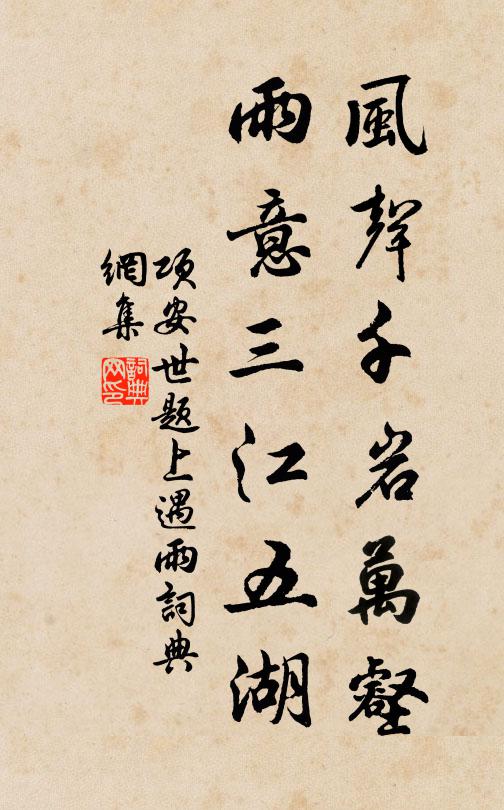 風聲千岩萬壑
雨意三江五湖
項安世題上遇雨詞典
網集
詞典网印